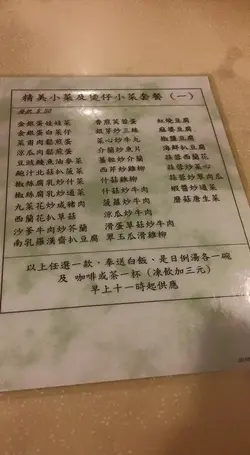 精美小菜及煲仔小菜套餐（一）
金銀蛋娃娃菜 香煎芙蓉蛋 紅燒豆腐
金銀蛋白菜仔 銀芽炒三絲 麻婆豆腐
菜甫肉鬆煎蛋 菜心炒牛丸 椒鹽豆腐
涼瓜肉鬆煎蛋 介蘭炒魚片 海鮮扒豆腐
豆豉鯪魚油麥菜 薑椒炒介蘭 蒜蓉西蘭花
鮑汁北菇扒菠菜 西芹炒雞柳 蒜蓉炒菜心
椒絲腐乳炒什菜 什菇雞柳 蒜蓉炒翠玉瓜
椒絲腐乳炒通菜 什菇炒牛肉 蝦醬炒通菜
九菜花炒咸豬肉 菠蘿炒牛肉 蘑菇唐生菜
西蘭花扒草菇 涼瓜炒牛肉
沙爹牛肉炒芥蘭 滑蛋草菇炒牛肉
南乳羅漢齋扒豆腐 翠玉瓜滑雞柳
以上任選一款，奉送白飯，是日例湯各一碗
及 咖啡或茶一杯（凍飲加三元）
早上十一時起供應